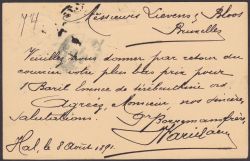 Messieurs Lievens & Bloos
Bruxelles
Veuillez nous donner par retour du
courrier votre plus bas prix pour
1 Baril bonne de
Agréez, Monsieur, nos sincères
Salutations.
Hal, le 8 Août 1891.